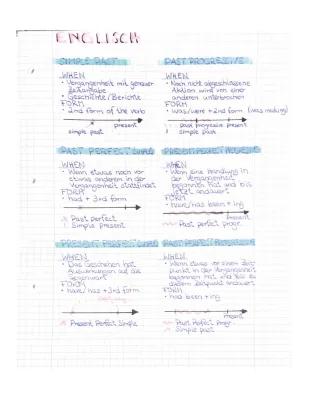 ENGLISCH
SIMPLE PAST
WHEN
• Vergangenheit mit genauer
Zeitangabe
• Geschichte/Berichte
FORM
• 2nd form of the verb
present
simple past
PAST PROGRESSIVE
WHEN
• Noch nicht abgeschlossene
Aktion wird von einer
anderen unterbrochen
FORM
• was/were + 2nd form
present
past progressive
simple past
PAST PERFECT
WHEN
• Wenn etwas noch vor
etwas anderen in der
Vergangenheit stattfindet
FORM
• had + 3rd form
Past perfect
Simple present
WHEN
• Wenn eine Handlung in
der Vergangenheit
begonnen hat und bis
jetzt andauert
FORM
• have/has been + ing
Present
Past perfect progr.
PRESENT PERFECT
WHEN
• Das Geschehen hat
Auswirkungen auf die
Gegenwart
FORM
• have/has + 3rd form
Present Perfect Simple
WHEN
• Wenn etwas vor einem Zeit-
punkt in der Vergangenheit
begonnen hat und bis zu
diesem Zeitpunkt andauert
FORM
• had been + ing
Present
Past Perfect Progr.
Simple past